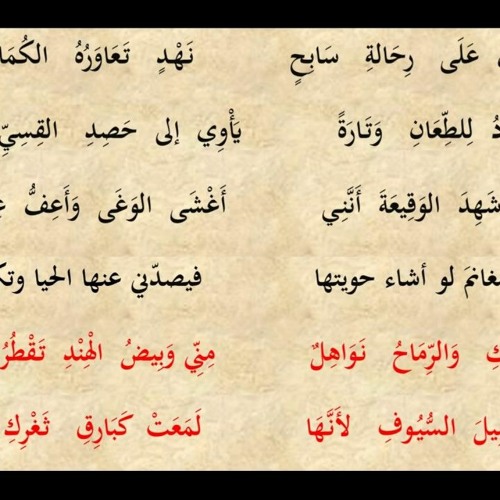 عَلَى رِحَالةِ سَابِحٍ نَهْدٍ تَعَاوَرُهُ الكُمَا
دُ لِلطِّعَانِ وَتَارَةً يَأْوِي إلى حَصِدِ القِسِيِّ
شَهِدَ الوَقِيعَةَ أَنَّنِي أَغْشَى الوَغَى وَأَعِفُّ
غانمَ لو أشاء حويتها فيصدّني عنها الحيا وتك
كِ وَالرِّمَاحُ نَوَاهِلٌ مِنِّي وَبِيضُ الْهِنْدِ تَقْطُرُ
يلَ السُّيُوفِ لأَنَّهَا لَمَعَتْ كَبَارِقِ ثَغْرِكِ